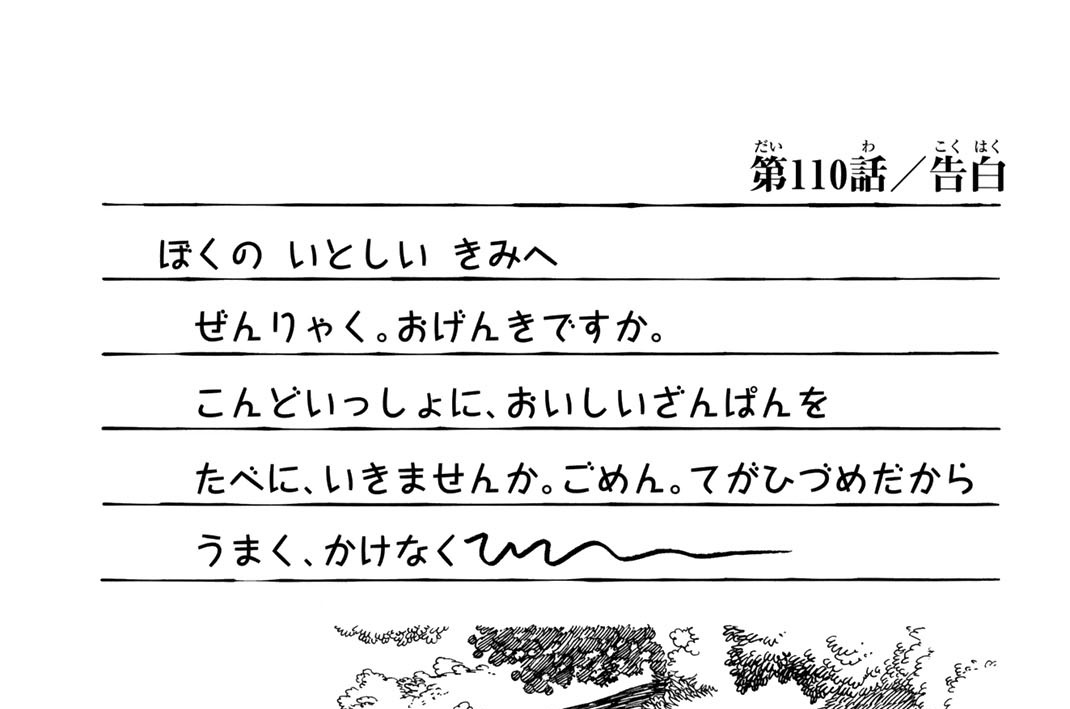 第110話／告白
ぼくの いとしい きみへ
ぜんりゃく。おげんきですか。
こんどいっしょに、おいしいざんぱんを
たべに、いきませんか。ごめん。てがひづめだから
うまく、かけなく